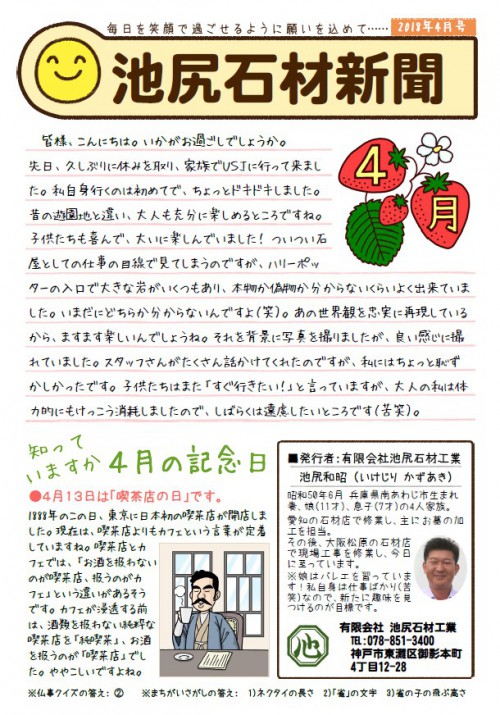 毎日を笑顔で過ごせるように願いを込めて……
2018年4月号
池尻石材新聞
皆様、こんにちは。いかがお過ごしでしょうか。
先日、久しぶりに休みを取り、家族でUSJに行って来まし
た。私自身行くのは初めてで、ちょっとドキドキしました。
昔の遊園地と違い、大人も充分に楽しめるところですね。
子供たちも喜んで、大いに楽しんでいました！ ついつい石
屋としての仕事の目線で見てしまうのですが、ハリーポッ
ターの入口で大きな岩がいくつもあり、本物か偽物か分からないくらいよく出来ていま
した。いまだにどちらか分からないんですよ(笑)。あの世界観を忠実に再現している
から、ますます楽しいんでしょうね。それを背景に写真を撮りましたが、良い感じに撮
れていました。スタッフさんがたくさん話かけてくれたのですが、私にはちょっと恥ず
かしかったです。子供たちはまた「すぐ行きたい！」と言っていますが、大人の私は体
力的にもけっこう消耗しましたので、しばらくは遠慮したいところです(苦笑)。
4
月
知って
いますか
4月の記念日
●4月13日は「喫茶店の日」です。
1888年のこの日、東京に日本初の喫茶店が開店しま
した。現在は、喫茶店よりもカフェという言葉が定着
していますね。喫茶店とカ
フェでは、「お酒を扱わない
のが喫茶店、扱うのがカ
フェ」という違いがあるそう
です。カフェが浸透する前
は、酒類を扱わない純粋な
喫茶店を「純喫茶」、お酒
を扱うのが「喫茶店」でし
た。ややこしいですよね。
■発行者：有限会社池尻石材工業
池尻和昭 (いけじり かずあき)
昭和50年6月 兵庫県南あわじ市生まれ
妻、娘(11才)、息子(7才)の4人家族。
愛知の石材店で修業し、主にお墓の加
工を担当。
その後、大阪松原の石材店
で現場工事を修業し、今日
に至っています。
※娘はバレエを習っていま
す！私自身は仕事ばかり(苦
笑)なので、新たに趣味を見
つけるのが目標です。
池
有限会社 池尻石材工業
TEL:078-851-3400
神戸市東灘区御影本町
4丁目12-28
※仏事クイズの答え：②　※まちがいさがしの答え： 1)ネクタイの長さ 2)「雀」の文字 3)雀の子の飛ぶ高さ